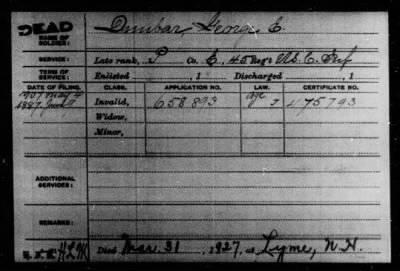 DEAD
NAME OF SOLDIER: Dunbar, George E.
SERVICE: Late rank, P Co. E, 45 Reg't U.S.C. Inf
TERM OF SERVICE: Enlisted , 1 Discharged , 1
DATE OF FILING. CLASS. APPLICATION NO. LAW. CERTIFICATE NO.
1907 May 4 age
1887 June Invalid, 658893 475793
Widow,
Minor,
ADDITIONAL SERVICES:
REMARKS:
Died Mar. 31, 1927, at Lyme, N.H.